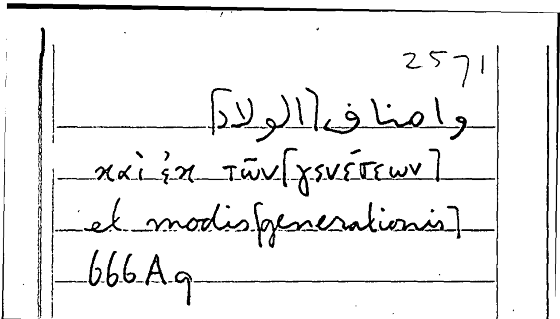 2571
واصناف [الولاد]
καὶ ἐκ τῶν [γενέσεων]
et modis [generationis]
666 A 9